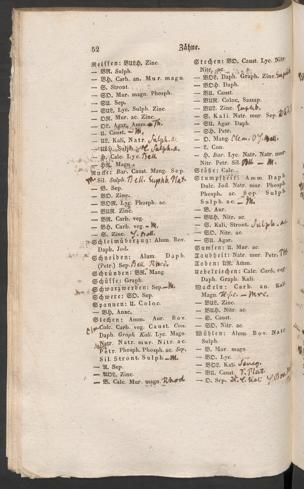 52
Zähne.
Reissen: BULH. Zinc.
— BR. Sulph.
— BH. Carb. an. Mur. magn.
— S. Stront.
— SO. Mur. magn. Phosph.
— SU. Sep.
— SUL. Lyc. Sulph. Zinc.
— OR. Mur. ac. Zinc.
— OL. Agar. Amm.
— U. Caust. — M.
— UL. Kali, Natr.
— H. Calc. Lyc. Bell
— HR. Magn.
Rucke: Bar. Caust. Mang. Sep.
Sil. Sulph. Bell. Euph. Plat.
— B. Sep.
— BO. Zinc.
— BOR. Lyc. Phosph. ac.
— BUR. Zinc.
— BR. Carb. veg.
— BH. Carb. veg. — M.
— S. Zinc.
Schleimüberzug: Alum. Bov.
Daph. Jod.
Schneiden: Alum. Daph.
(Petr.) Sep.
Schrunden: BR. Mang.
Schüsse: Graph.
Schwarzwerden: Sep.
Schwere: SO. Sep.
Spannen: U. Coloc.
— BH. Anac.
Stechen: Amm. Aur. Bov.
Calc. Carb. veg. Caust. Con.
Daph. Graph. Kali. Lyc. Magn.
Natr. Natr. mur. Nitr. ac.
Petr. Phosph. Phosph. ac. Sep.
Sil. Stront. Sulph. — M.
— R. Sep.
— BOL. Zinc.
— B. Calc. Mur. magn. Rhod
Stechen: BO. Caust. Lyc. Nitr.
Nitr. ac.
— BOL. Daph. Graph. Zinc. Euph
— BOH. Daph.
— BU. Caust.
— BUR. Coloc. Samar.
— BUL. Zinc. Euph.
— S. Kali. Natr. mur. Sep.
— SU. Agar. Daph.
— SH. Petr.
— O. Mang.
— L. Con.
— H. Bar. Lyc. Natr. Natr. mur.
Nitr. Petr. Sil. — M.
Stösse: Calc.
Stumpfheit: Amm. Daph.
Dulc. Jod. Natr. mur. Phosph.
Phosph. ac. Sep. Sulph.
Sulph. ac. — M.
— B. Aur.
— BUH. Nitr. ac.
— S. Kali, Stront.
— SO. Nitr. ac.
— SU. Agar.
Sumsen: U. Mur. ac.
Taubheit: Natr. mur. Petr.
Toben: UR. Amm.
Ueberziehen: Calc. Carb. veg.
Daph. Graph. Kali.
Wackeln: Carb. veg. Kali
Magn.
— BUL. Zinc.
— BUH. Nitr. ac.
— S. Caust.
— SO. Nitr. ac.
Wühlen: Alum. Bov. Natr.
Sulph.
— B. Mur. magn.
— BO. Lyc.
— BUL. Kali
— SU. Caust.
— O. Sep.